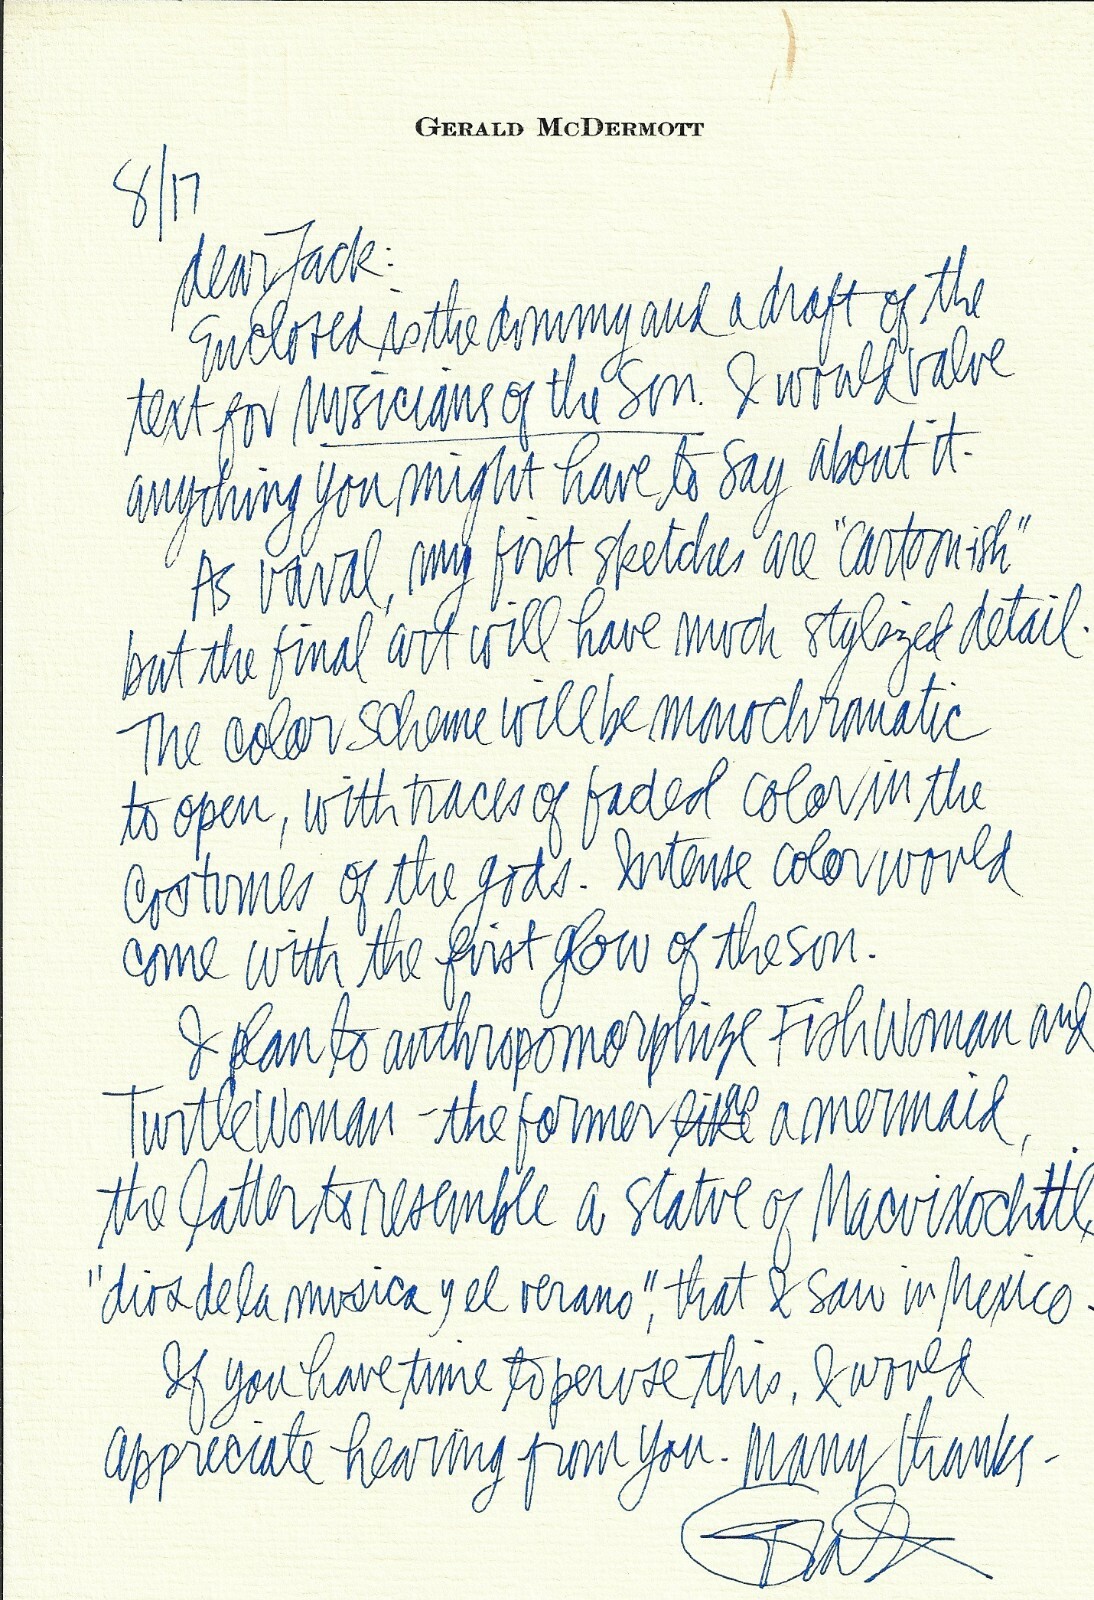 GERALD McDERMOTT
8/17
dear Jack:
Enclosed is the dummy and a draft of the
text for Musicians of the Sun. I would value
anything you might have to say about it.
As usual, my first sketches are "cartoon-ish"
but the final art will have much stylized detail.
The color scheme will be monochromatic
to open, with traces of faded color in the
costumes of the gods. Intense color would
come with the first glow of the sun.
I plan to anthropomorphize Fish Woman and
Turtle Woman - the former like a mermaid,
the latter to resemble a statue of Macuixochitl,
"dios de la musica y el verano", that I saw in Mexico -
If you have time to peruse this, I would
appreciate hearing from you. Many thanks -